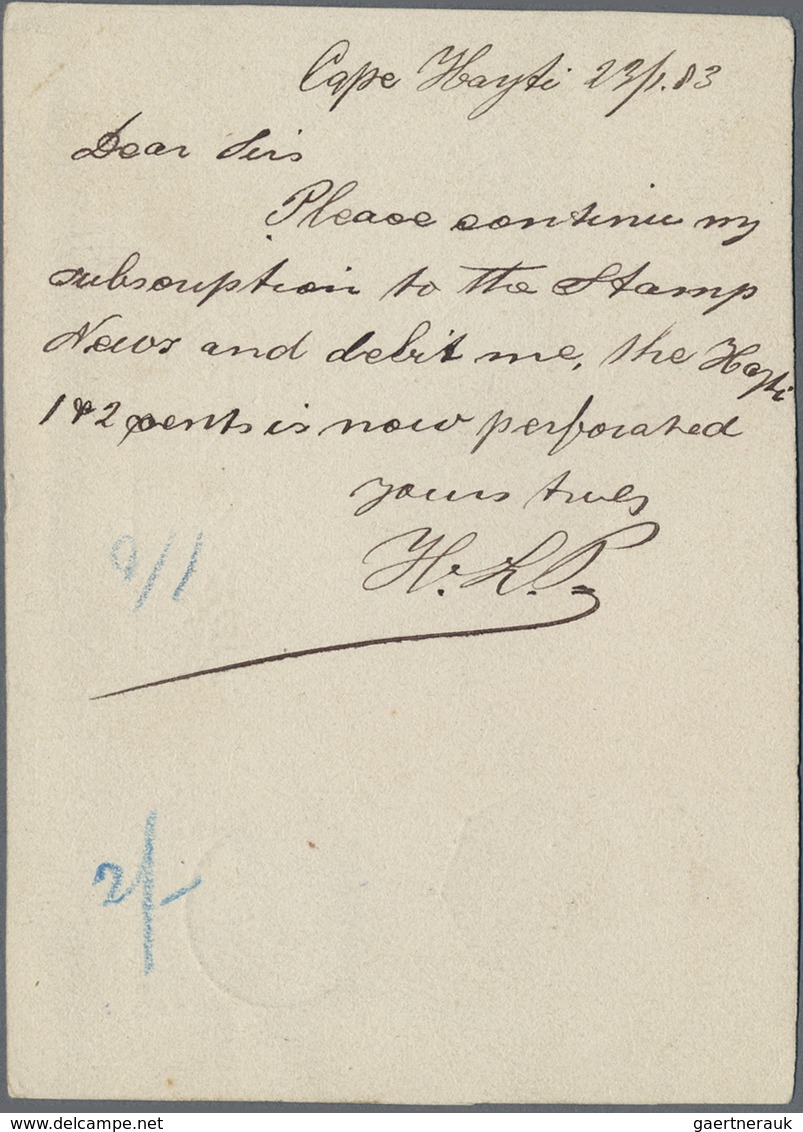 Cape Hayti 23/1.83
Dear Sirs
Please continue my
subscription to the Stamp
News and debit me, the Hayti
1 & 2 cents is now perforated
yours truly
H. L. P.
9/1
2/-
gaertnerauk